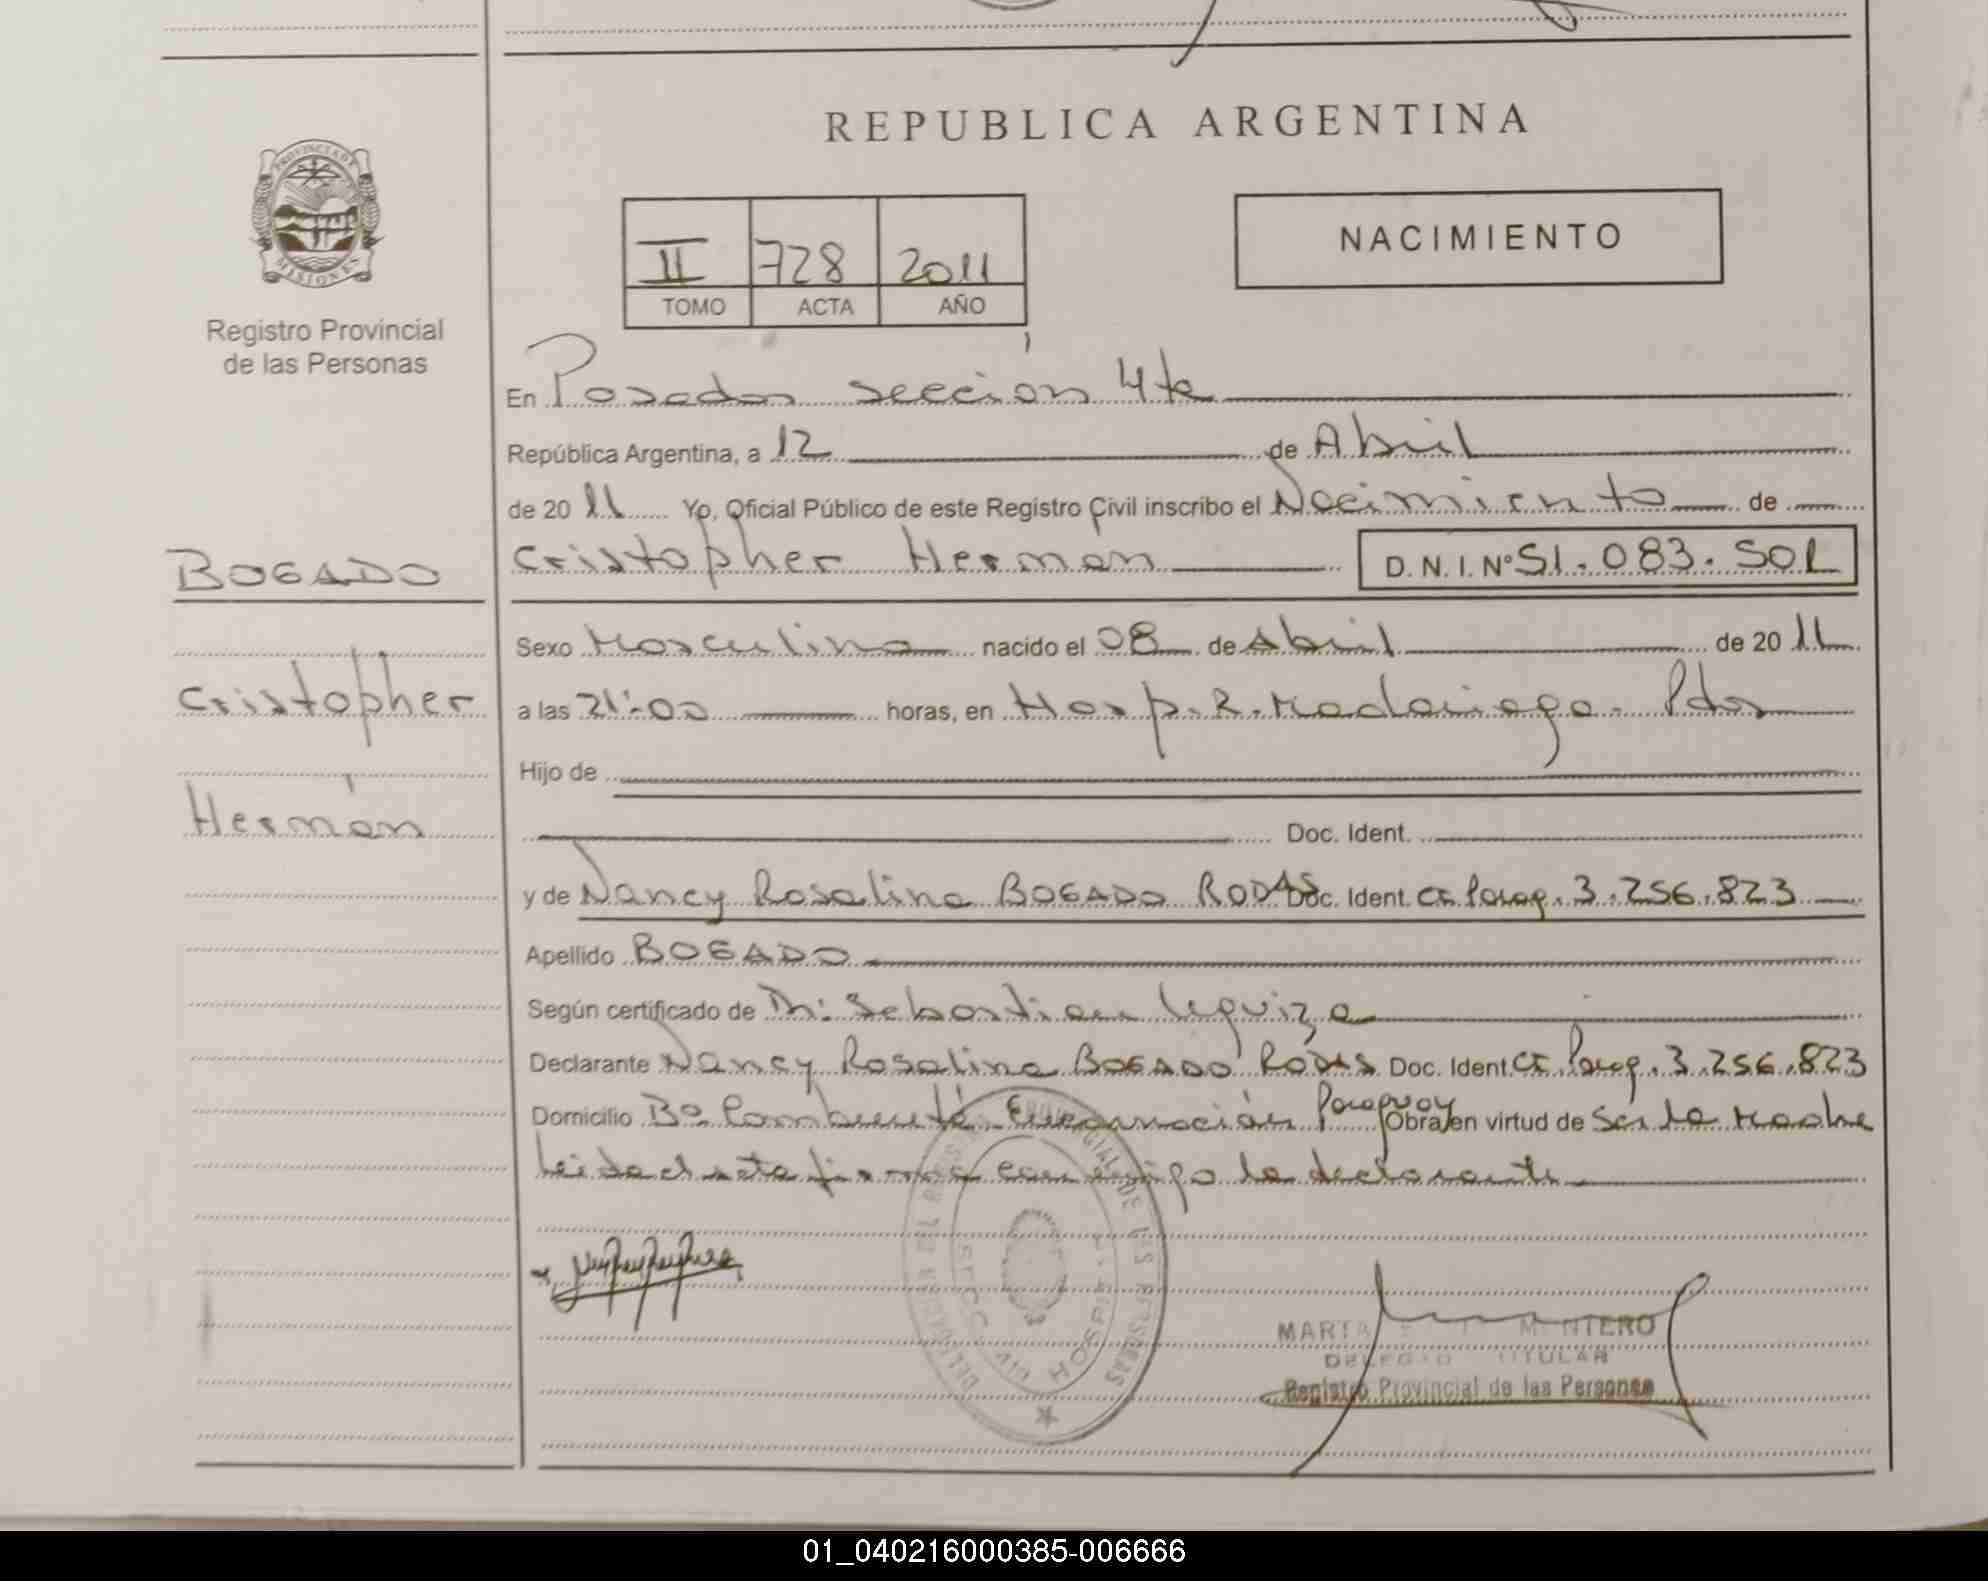 REPUBLICA ARGENTINA
PROVINCIA DE
MISIONES
Registro Provincial
de las Personas
II 728 2011
TOMO ACTA AÑO
NACIMIENTO
En Posadas sección 4ta
República Argentina, a 12 de Abril
de 2011 Yo, Oficial Público de este Registro Civil inscribo el Nacimiento de
BOGADO
Cristopher Hernán D.N.I. Nº 51.083.501
Sexo Masculino nacido el 08 de Abril de 2011
Cristopher
a las 21:00 horas, en Hosp. R. Madariaga. Pdas
Hijo de
Hernán
Doc. Ident.
y de Nancy Rosalina BOGADO RODAS Doc. Ident. CI. Parag. 3.256.823
Apellido BOGADO
Según certificado de Dr: Sebastian
Declarante Nancy Rosalina BOGADO RODAS Doc. Ident. CI. Parag. 3.256.823
Domicilio Bº Encarnación Paraguay Obra en virtud de Ser la Madre
Leida el acta firma conmigo la declarante
MARTA
TITULAR
Registro Provincial de las Personas
01_040216000385-006666